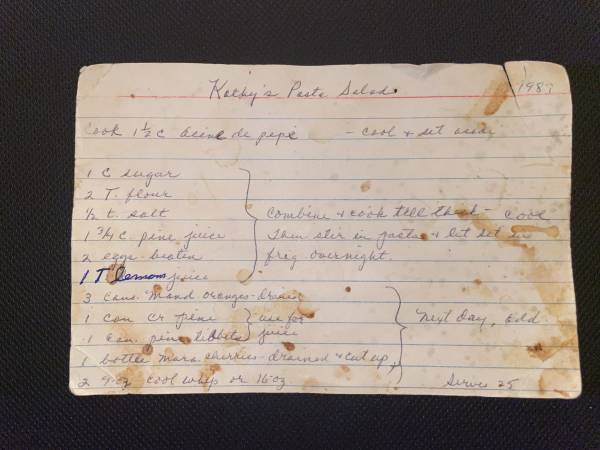 Kathy's Pasta Salad 1983
Cook 1½ c acine de pepe - cool & set aside
1 C sugar
2 T. flour
½ t. salt
1 ¾ c. pine juice
2 eggs beaten
1 T lemon juice
Combine & cook till thick - cool
Then stir in pasta & let set in
frig overnight.
3 cans Mand oranges - drained
1 can cr pine
1 can pine tidbits
use for
juice
1 bottle Mara cherries - drained & cut up
2 9-oz cool whip or 16-oz
Next Day, add
Serves 25